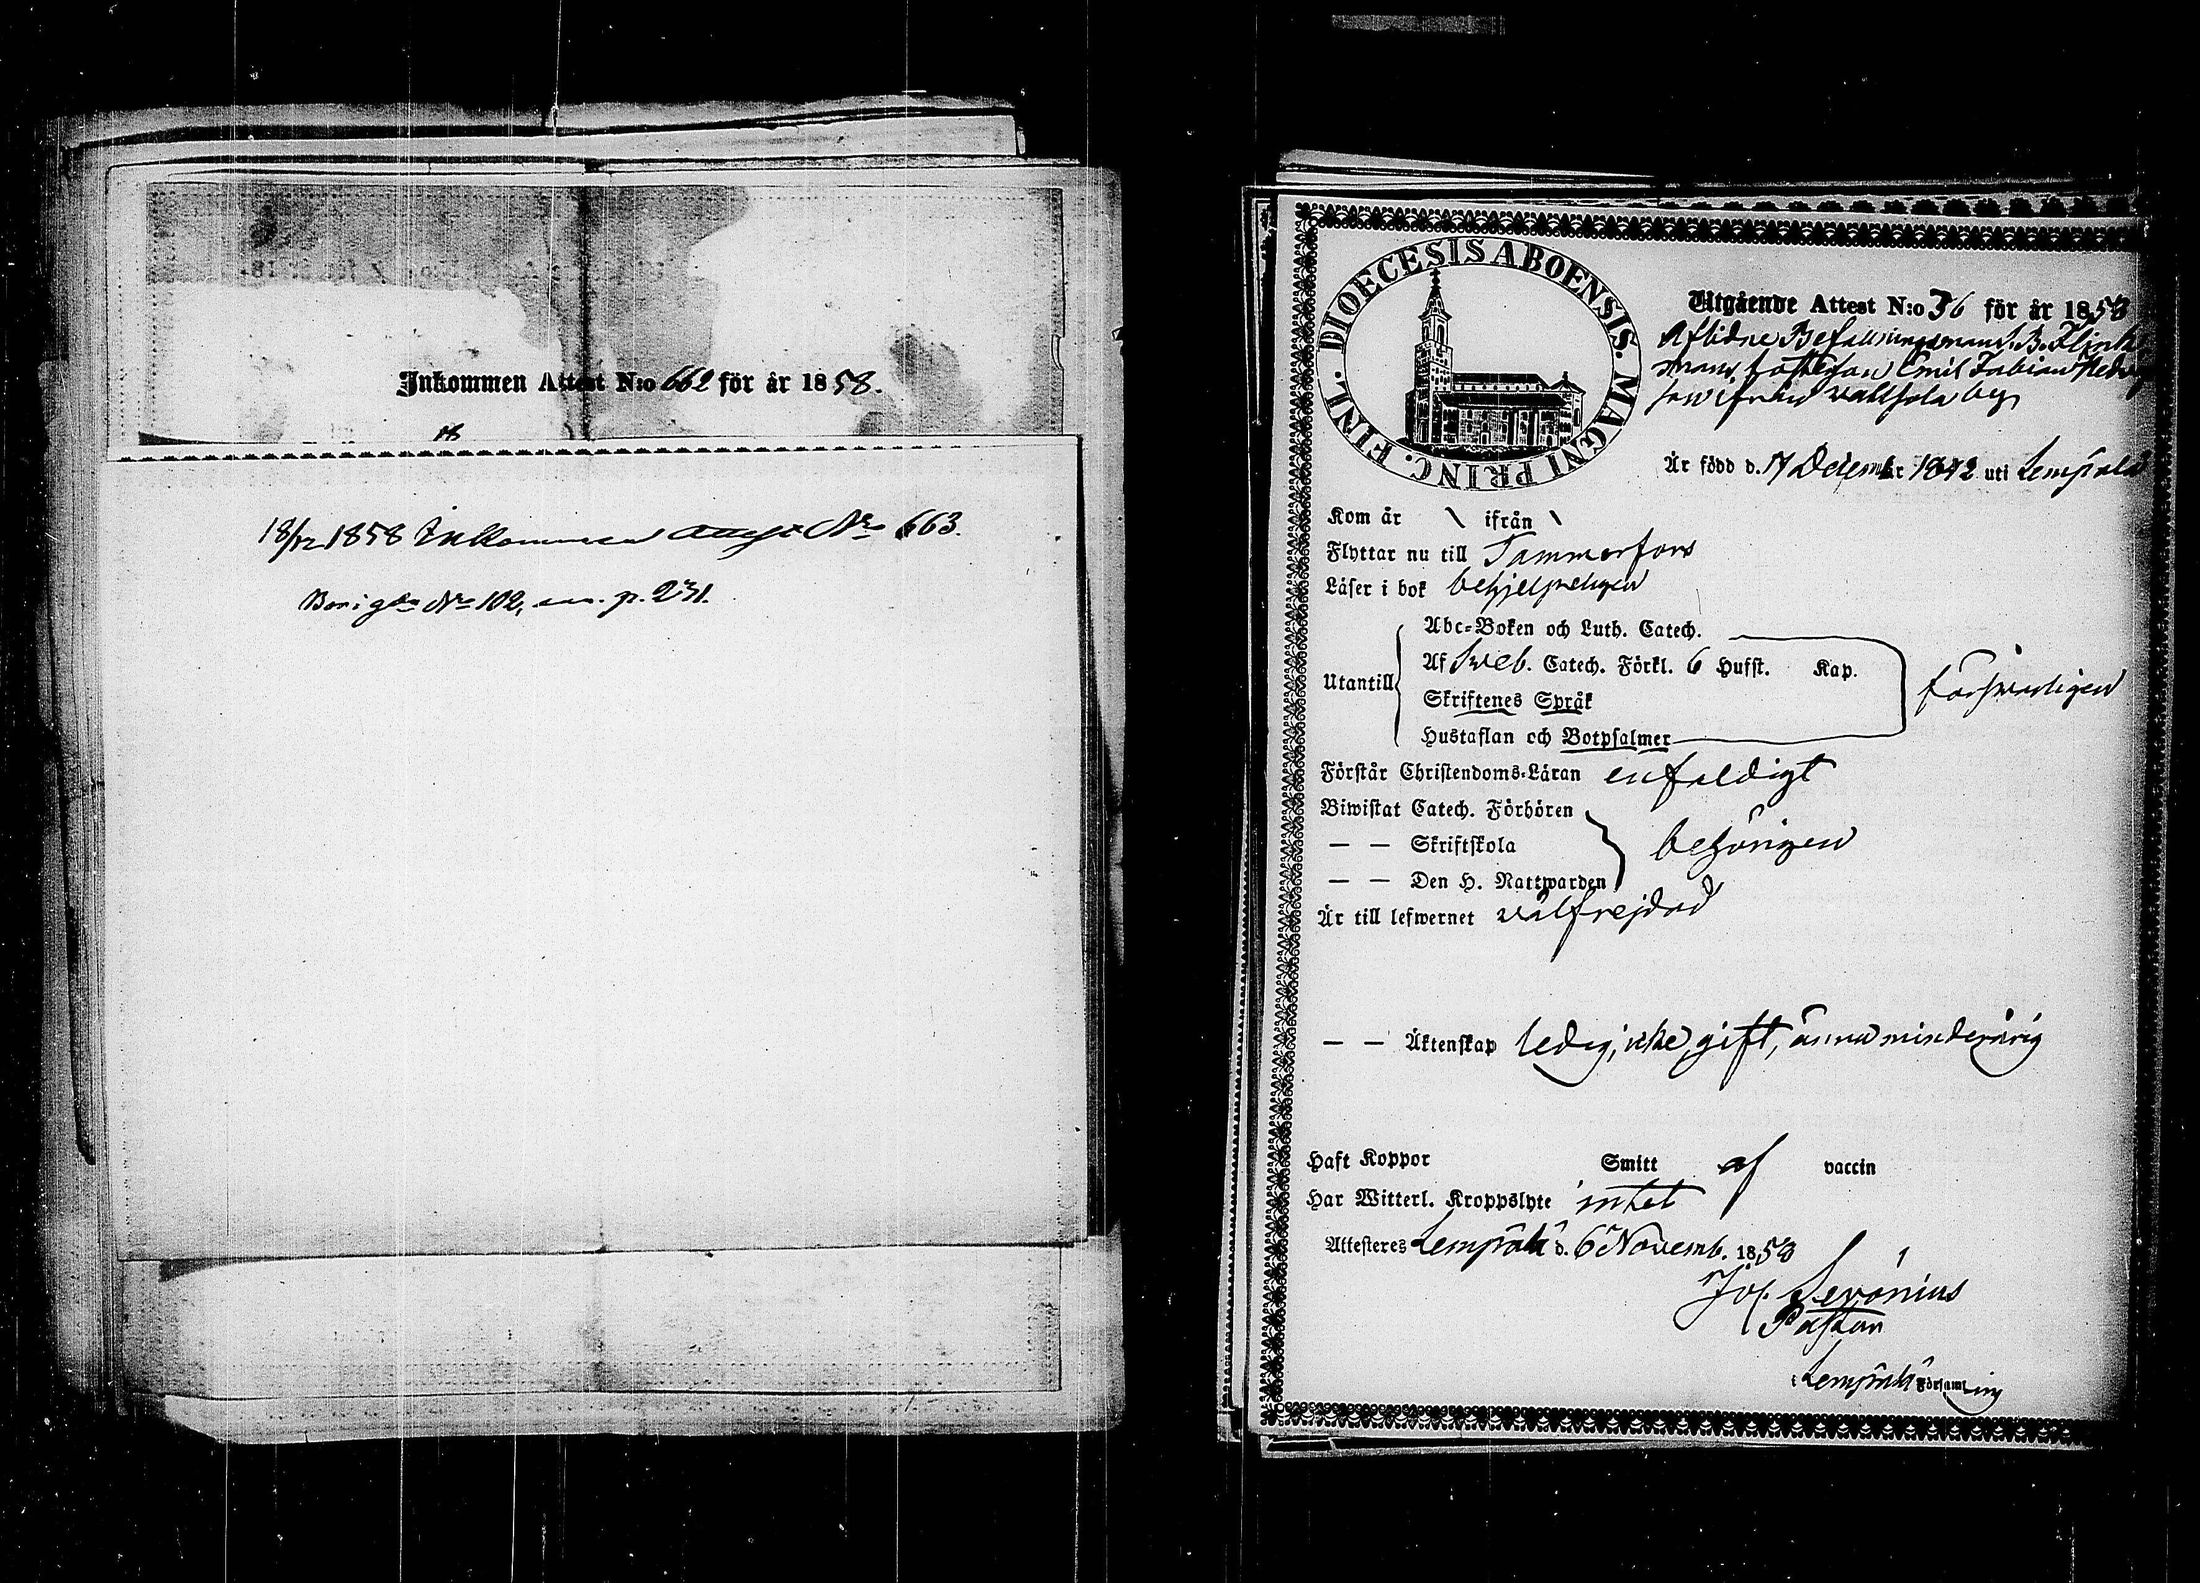 Inkommen Attest N:o 662 för år 1858.
18/12 1858 Inkommen N:o 663.
N:o 102, p. 231.
DIOECESIS ABOENSIS. MAGNI PRINC. FINL.
Utgående Attest N:o 36 för år 1858
Aflidne Befallningsmans. B. Flink
mans Emil Fabian
son ifrån by
Är född d. 17 Decemb:r 1842 uti Lempälä
Kom år \ ifrån \
Flyttar nu till Tammerfors
Läser i bok behjelpeligen
Abc-Boken och Luth. Catech.
Utantill
Af Sveb. Catech. Förkl. 6 Hufst. Kap.
försvarligen
Skriftenes Språk
Hustaflan och Botpsalmer
Förstår Christendoms-Läran enfaldigt
Biwistat Catech. Förhören
— — Skriftskola
behörigen
— — Den H. Nattwarden
Är till lefwernet välfrejdad
— — Äktenskap ledig, icke gift, ännu minderårig
Haft Koppor Smitt af vaccin
Har Witterl. Kroppslyte intet
Attesteres Lempälä d. 6 Novemb. 1858
Jos. Servonius
Pastor
i Lempälä Församling